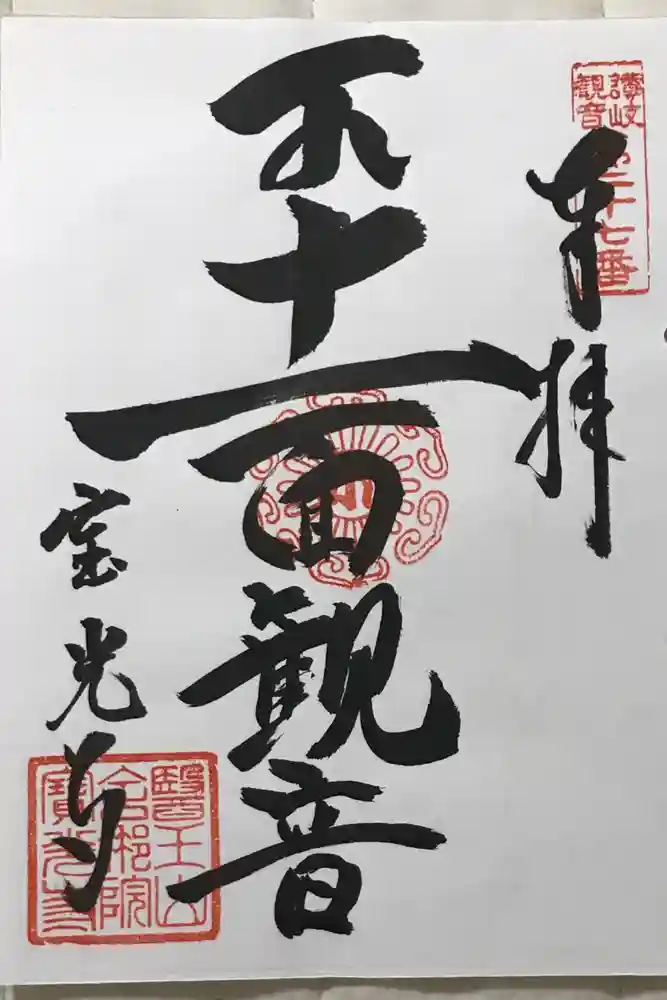 讃岐
観音
第二十七番
奉拝
十一面観音
宝光寺
醫王山
院
寶光寺